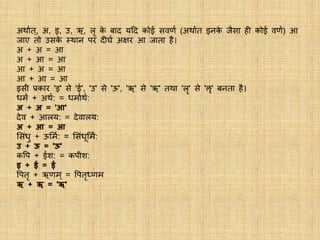 अर्थात्, अ, इ, उ, ऋ, लृ के बाद यदि कोई सवर्ण (अर्थात इनके जैसा ही कोई वर्ण) आ
जाए तो उसके स्थान पर दीर्घ अक्षर आ जाता है।
अ + अ = आ
अ + आ = आ
आ + अ = आ
आ + आ = आ
इसी प्रकार 'इ' से 'ई', 'उ' से 'ऊ', 'ऋ' से 'ॠ' तथा 'लृ' से 'लृ' बनता है।
धर्म + अर्थ: = धर्मार्थ:
अ + अ = 'आ'
देव + आलय: = देवालय:
अ + आ = आ
सिंधु + ऊर्मि: = सिंधूर्मि:
उ + ऊ = 'ऊ'
कपि + ईश: = कपीश:
इ + ई = ई
पितृ + ऋणम् = पितृणम
ऋ + ऋ = 'ॠ'